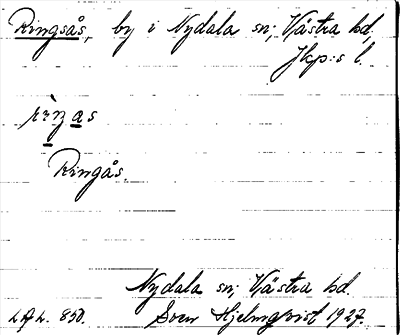 Ringsås, by i Nydala sn; Västra hd,
Jkp:s l.
Ringås.
Nydala sn; Västra hd.
L.A.L. 850. Sven Hjelmqvist 1927.